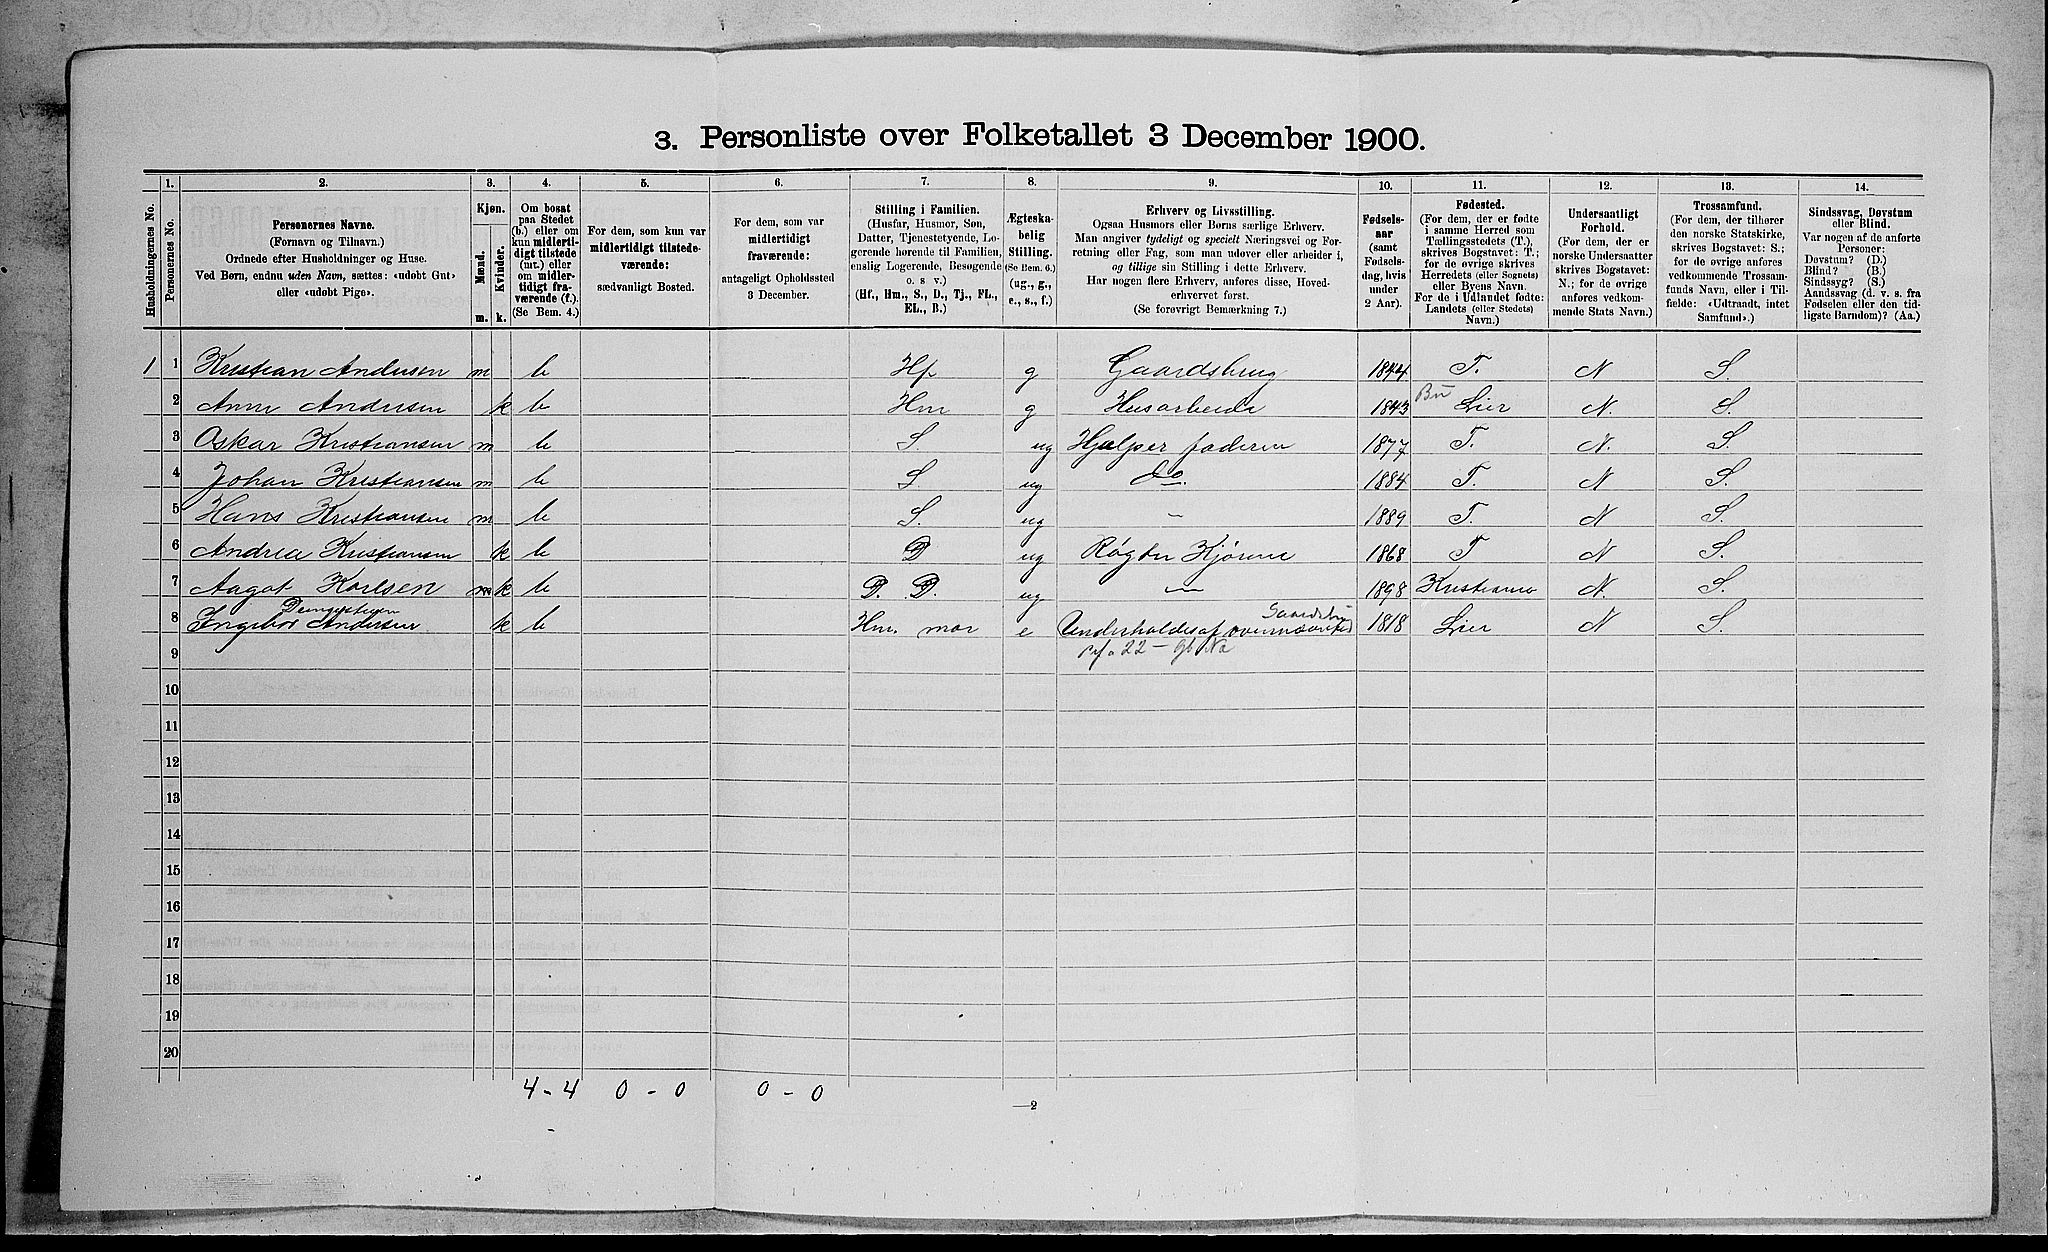 3. Personliste over Folketallet 3 December 1900.
1. 2. 3. 4. 5. 6. 7. 8. 9. 10. 11. 12. 13. 14.
Husholdningernes No.
Personernes No.
Personernes Navne.
(Fornavn og Tilnavn.)
Ordnede efter Husholdninger og Huse.
Ved Børn, endnu uden Navn, sættes: «udøbt Gut»
eller «udøbt Pige».
Kjøn.
Mænd.
Kvinder.
m. k.
Om bosat
paa Stedet
(b.) eller om
kun midlerti-
digt tilstede
(mt.) eller
om midler-
tidigt fra-
værende (f.).
(Se Bem. 4.)
For dem, som kun var
midlertidigt tilstede-
værende:
sædvanligt Bosted.
For dem, som var
midlertidigt
fraværende:
antageligt Opholdssted
3 December.
Stilling i Familien.
(Husfar, Husmor, Søn,
Datter, Tjenestetyende, Lo-
gerende hørende til Familien,
enslig Logerende, Besøgende
o. s. v.)
(Hf., Hm., S., D., Tj., FL.,
EL., B.)
Ægteska-
belig
Stilling.
(Se Bem. 6.)
(ug., g.,
e., s., f.)
Erhverv og Livsstilling.
Ogsaa Husmors eller Børns særlige Erhverv.
Man angiver tydeligt og specielt Næringsvei og For-
retning eller Fag, som man udøver eller arbeider i,
og tillige sin Stilling i dette Erhverv.
Har nogen flere Erhverv, anføres disse, Hoved-
erhvervet først.
(Se forøvrigt Bemærkning 7.)
Fødsels-
aar
(samt
Fødsels-
dag, hvis
under
2 Aar).
Fødested.
(For dem, der er fødte
i samme Herred som
Tællingsstedets (T.),
skrives Bogstavet: T.;
for de øvrige skrives
Herredets (eller Sognets)
eller Byens Navn.
For de i Udlandet fødte:
Landets (eller Stedets)
Navn.)
Undersaatligt
Forhold.
(For dem, der er
norske Undersaatter
skrives Bogstavet:
N.; for de øvrige
anføres vedkom-
mende Stats Navn.)
Trossamfund.
(For dem, der tilhører
den norske Statskirke,
skrives Bogstavet: S.;
for de øvrige anføres
vedkommende Trossam-
funds Navn, eller i Til-
fælde: «Udtraadt, intet
Samfund».)
Sindssvag, Døvstum
eller Blind.
Var nogen af de anførte
Personer:
Døvstum? (D.)
Blind? (B.)
Sindssyg? (S.)
Aandssvag (d. v. s. fra
Fødselen eller den tid-
ligste Barndom)? (Aa.)
1 1 Kristian Andersen m b Hf. g Gaardsbrug 1844 T. N S.
2 Anne Andersen k b Hm g Husarbeide 1843 Lier N. S.
3 Oskar Kristiansen m b S. ug Hjælper faderen 1877 T. N. S.
4 Johan Kristiansen m b S ug do. 1884 T. N S.
5 Hans Kristiansen m b S. ug " 1889 T. N S.
6 Andrea Kristiansen k b D ug Røgter Kjørene 1868 T N S.
7 Aagot Karlsen k b D. D. ug — 1898 Kristiania N. S.
8 Ingebor Andersen k b Hm. mor e Underholdes af 1818 Lier N S.
9
10
11
12
13
14
15
16
17
18
19
20
4 - 4 0 - 0 0 - 0
2